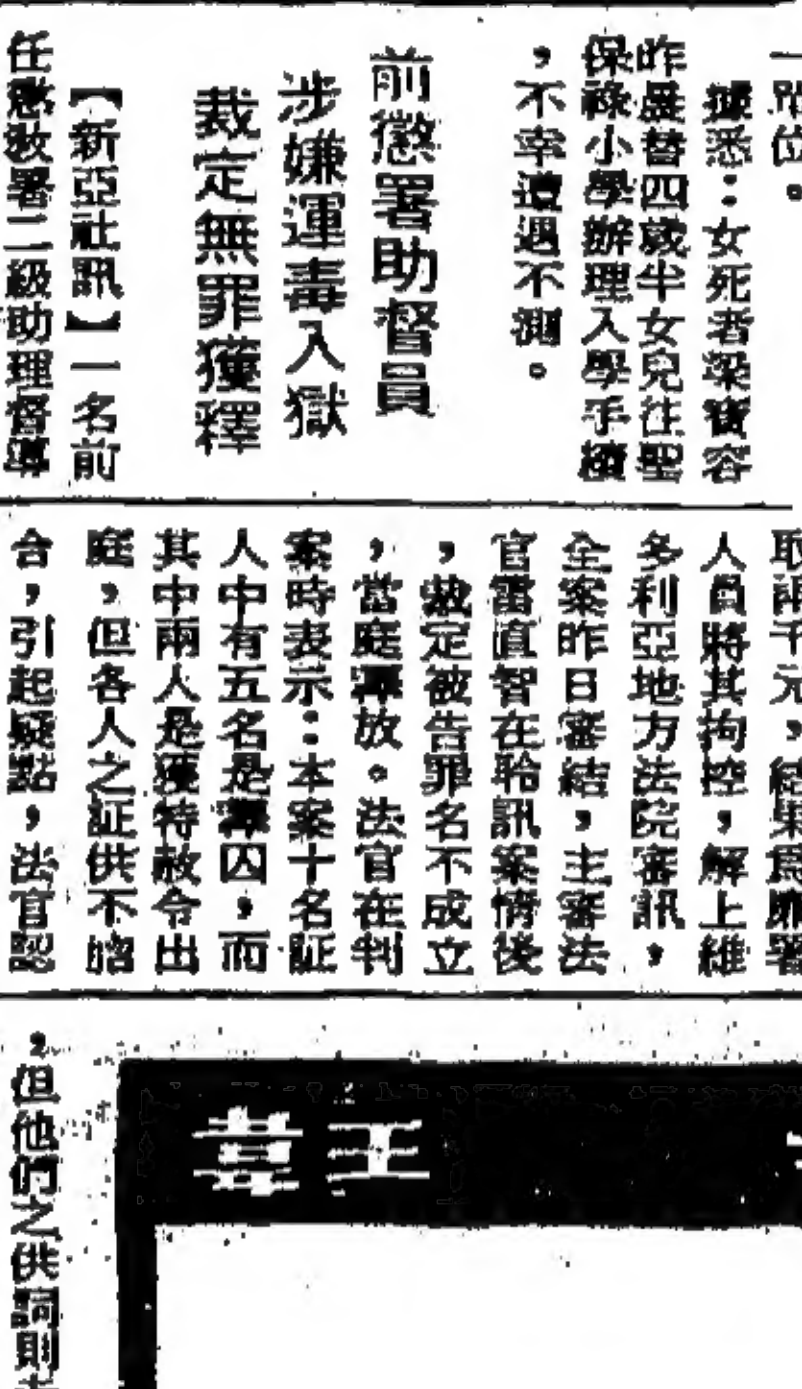 一單位。
據悉：女死者梁寶容
昨晨替四歲半女兒往聖
保祿小學辦理入學手續
，不幸遭遇不測。
前懲署助督員
涉嫌運毒入獄
裁定無罪獲釋
【新亞社訊】一名前
任懲敎署二級助理督導
取兩千元，結果爲廉署
人員將其拘控，解上維
多利亞地方法院審訊，
全案昨日審結，主審法
官雷直智在聆訊案情後
，裁定被告罪名不成立
，當庭釋放。法官在判
案時表示：本案十名証
人中有五名是釋囚，而
其中兩人是獲特赦令出
庭，但各人之証供不脗
合，引起疑點，法官認
，但他們之供詞則